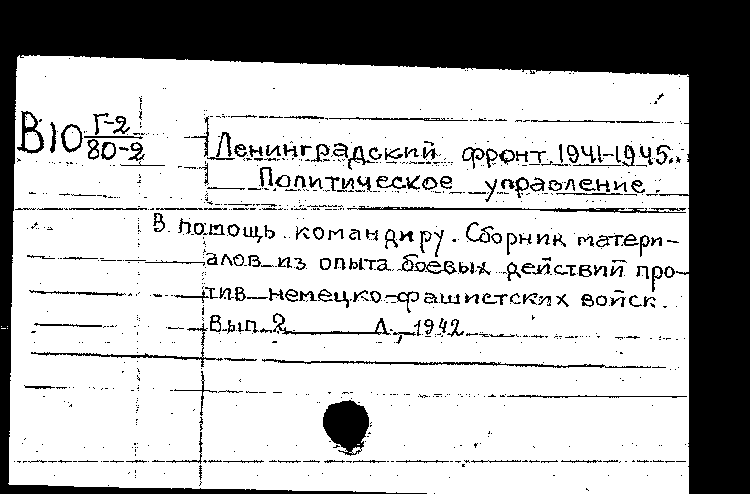 В10 Г-2
80-2
Ленинградский фронт 1941-1945..
Политическое управление.
В помощь командиру. Сборник матери-
алов из опыта боевых действий про-
тив немецко-фашистских войск.
Вып. 2 Л., 1942